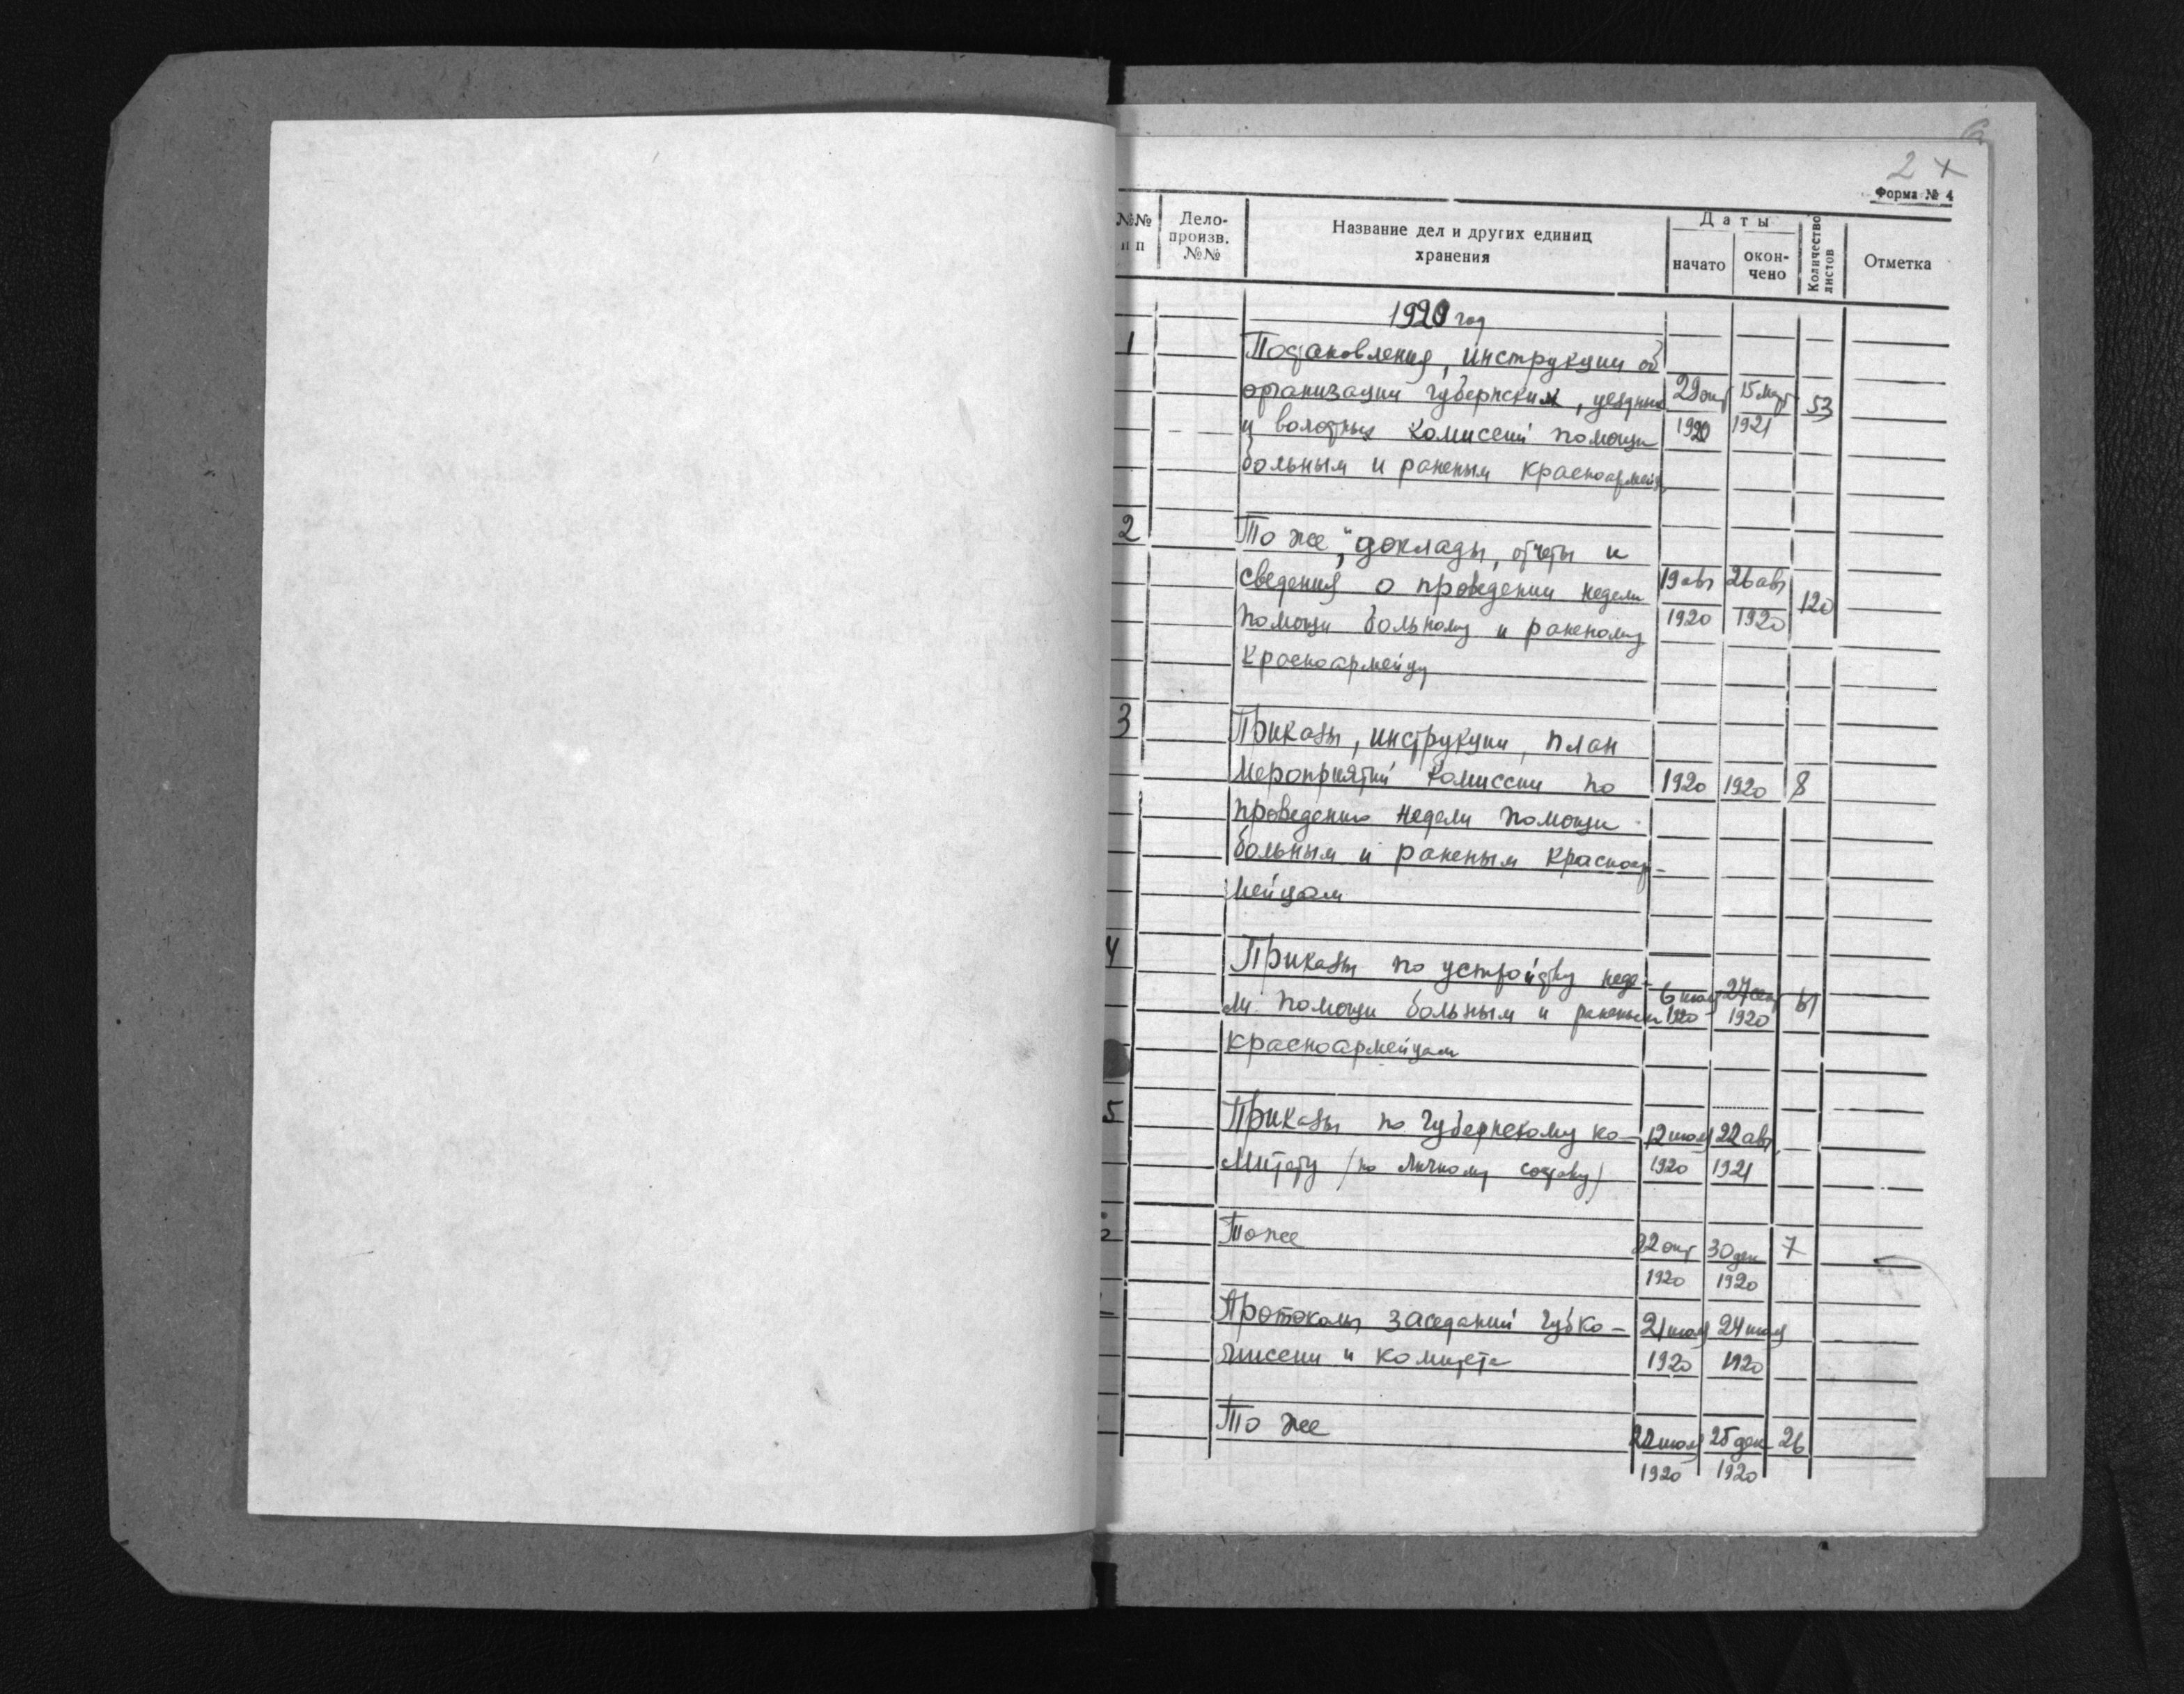 2
Форма № 4
№№ п п
Дело-произв. №№
Название дел и других единиц хранения
Даты
начато
окон-чено
Количество листов
Отметка
1920 год
1 Постановления, инструкции об
организации губернских, уездных 29 окт 15 март 53
и волостных комиссий помощи 1920 1921
больным и раненым красноармейц
2 То же, доклады, отчеты и
сведения о проведении недели 19 авг 26 авг 120
помощи больному и раненому 1920 1920
красноармейцу
3 Приказы, инструкции, план
мероприятий комиссии по 1920 1920 8
проведению недели помощи
больным и раненым красноар-
мейцам
4 Приказы по устройству неде-
ли помощи больным и раненым 27 сент 61
1920 1920
красноармейцам
5 Приказы по губернскому ко- 22 авг
митету (по личному составу) 1920 1921
То же 22 окт 30 дек 7
1920 1920
Протоколы заседаний губко-
миссии и комитета 1920 1920
То же 25 дек 26
1920 1920